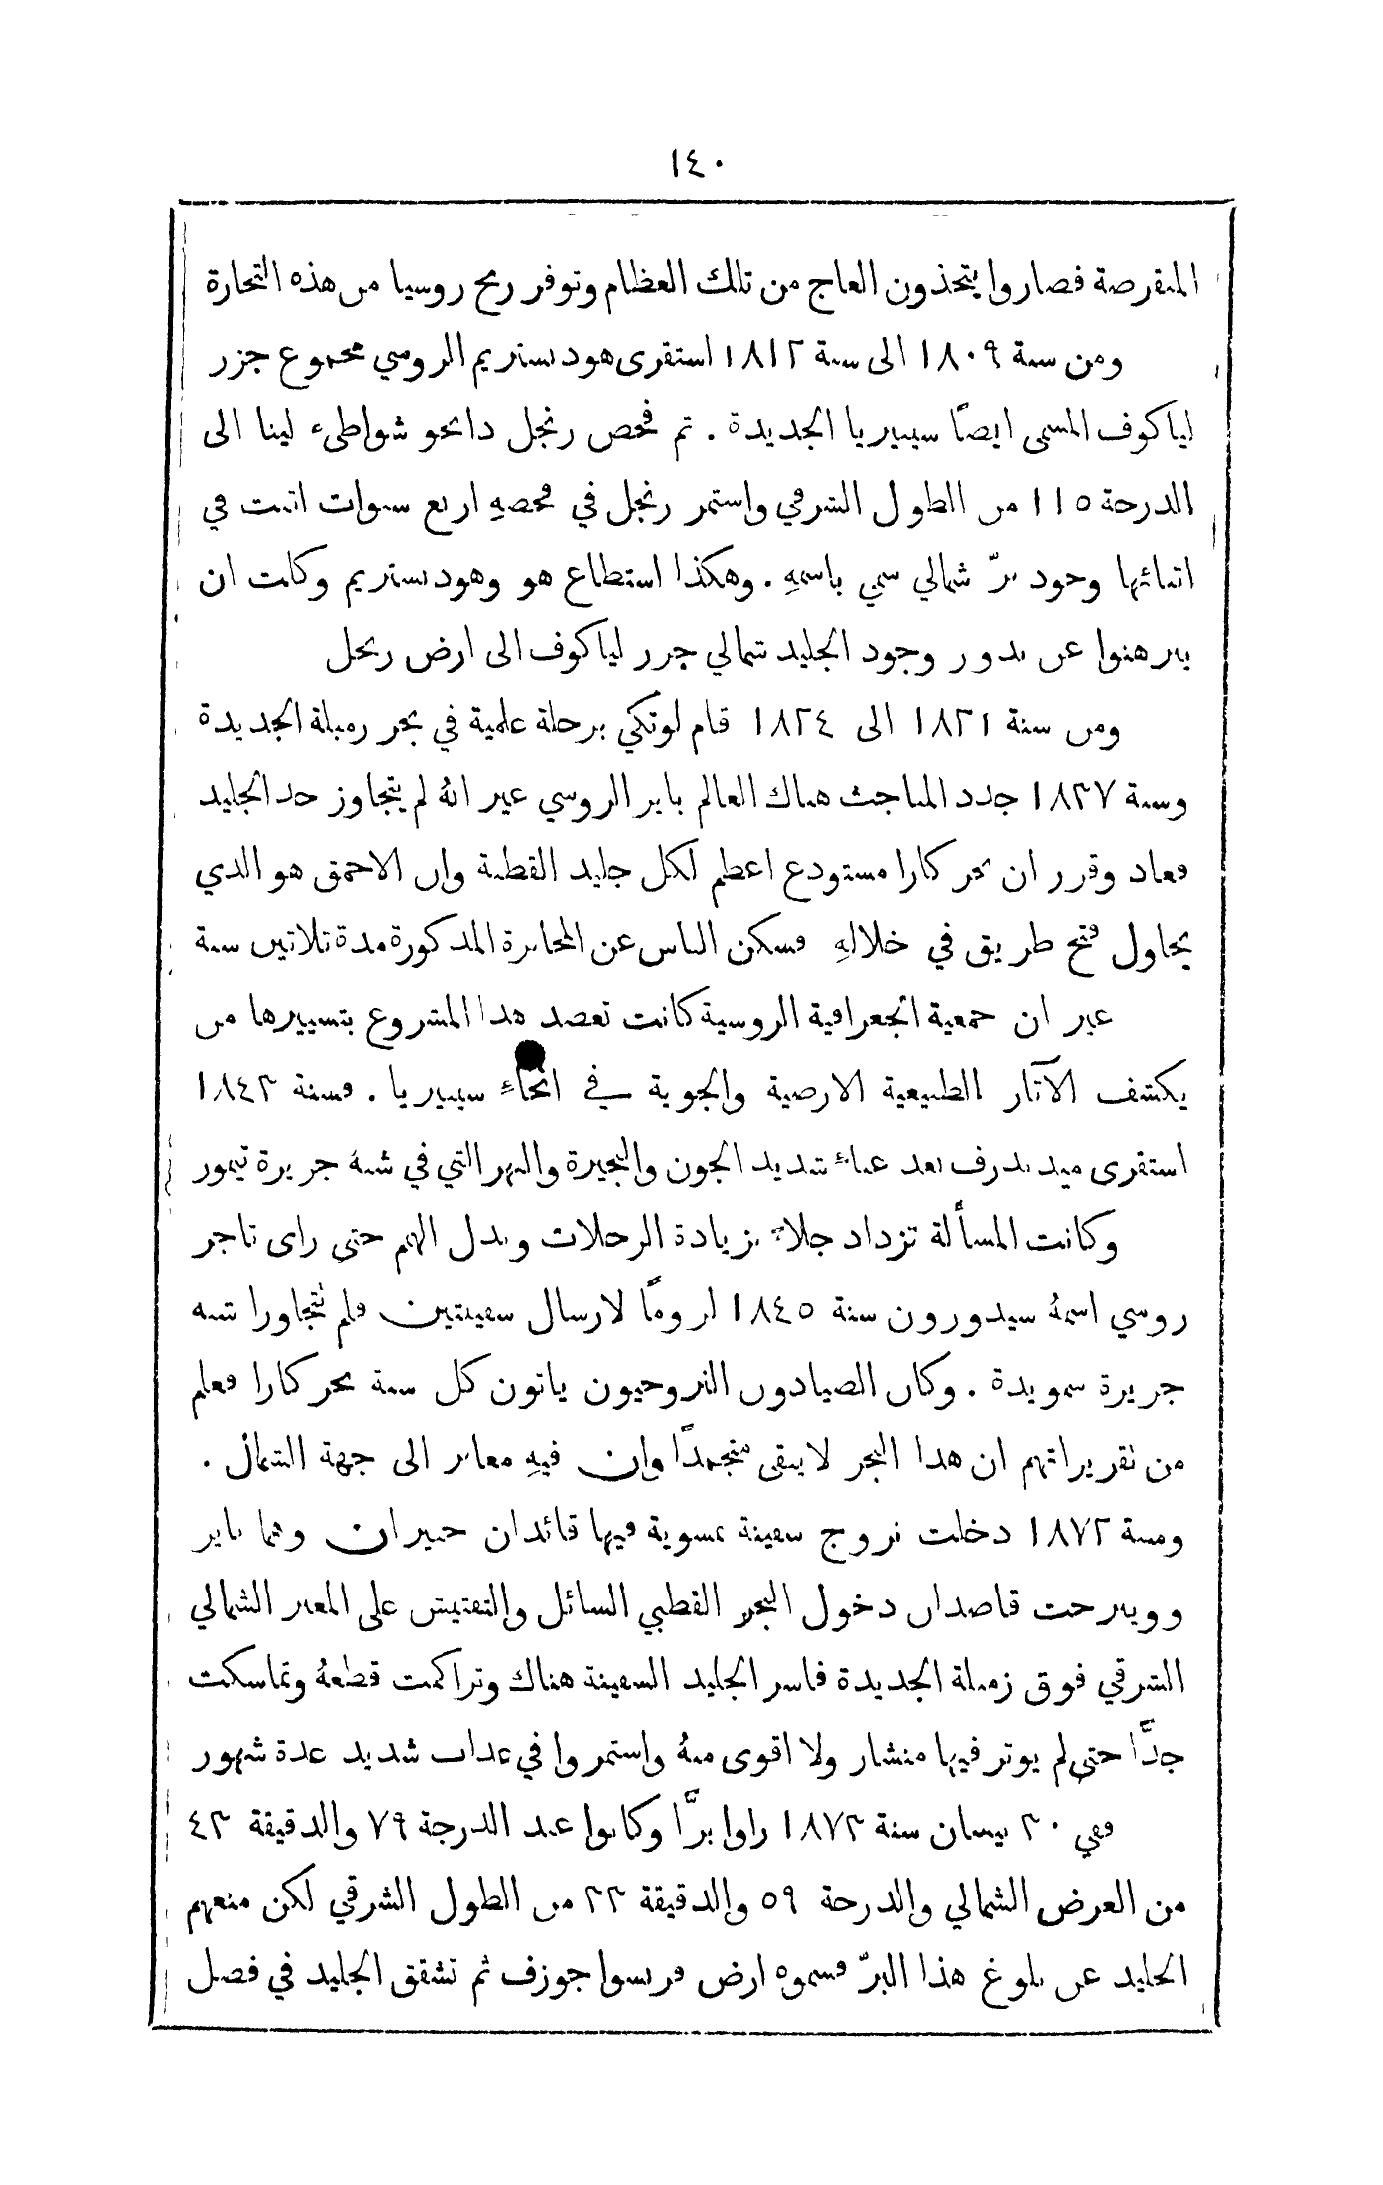 ١٤٠
المنقرضة فصاروا يتخذون العاج من تلك العظام وتوفر ربح روسيا من هذه التجارة
ومن سنة ١٨٠٩ الى سنة ١٨١٢ استقرى هودنستريم الروسي مجموع جزر
لياكوف المسمى ايضًا سيبيريا الجديدة . ثم فحص رنجل دانجو شواطىء لينا الى
الدرجة ١١٥ من الطول الشرقي واستمر رنجل في فحصهِ اربع سنوات اثبت في
اثنائها وجود برّ شمالي سمي باسمهِ . وهكذا استطاع هو وهودنستريم وكانت ان
يبرهنوا عن بدور وجود الجليد شمالي جزر لياكوف الى ارض رنجل
ومن سنة ١٨٢١ الى ١٨٢٤ قام لوتكي برحلة علمية في بحر زمبلة الجديدة
وسنة ١٨٣٧ جدد المباحث هناك العالم باير الروسي غير انهُ لم يتجاوز حد الجليد
فعاد وقرر ان بحر كارا مستودع اعظم لكل جليد القطبة وان الاحمق هو الذي
يحاول فتح طريق في خلالهِ فسكن الناس عن المخابرة المذكورة مدة ثلاثين سنة
غير ان جمعية الجغرافية الروسية كانت تعضد هذا المشروع بتسييرها من
يكتشف الآثار الطبيعية الارضية والجوية في انحاءِ سيبيريا . فسنة ١٨٤٣
استقرى ميدندرف بعد عناءٍ شديد الجون والبحيرة والنهر التي في شبه جريرة تيمور
وكانت المسألة تزداد جلاءً بزيادة الرحلات وبذل الهمم حتى راى تاجر
روسي اسمهُ سيدورون سنة ١٨٤٥ لزومًا لارسال سفينتين فلم تتجاوزا شبه
جريرة سمويدة . وكان الصيادون النروجيون ياتون كل سنة بحر كارا فعلم
من تقريراتهم ان هذا البحر لا يبقى منجمدًا وان فيهِ معابر الى جهة الشمال .
وسنة ١٨٧٢ دخلت نروج سفينة نمسوية فيها قائدان خبيران وهما باير
وويبرحت قاصدان دخول البحر القطبي السائل والتفتيش على المعبر الشمالي
الشرقي فوق زمبلة الجديدة فاسر الجليد السفينة هناك وتراكمت قطعهُ وتماسكت
جدًّا حتى لم يوثر فيها منشار ولا اقوى منهُ واستمروا في عذاب شديد عدة شهور
وفي ٣٠ نيسان سنة ١٨٧٣ راوا برًّا وكانوا عند الدرجة ٧٩ والدقيقة ٤٣
من العرض الشمالي والدرجة ٥٩ والدقيقة ٣٣ من الطول الشرقي لكن منعهم
الجليد عن بلوغ هذا البرّ فسموه ارض فرنسوا جوزف ثم تشقق الجليد في فصل